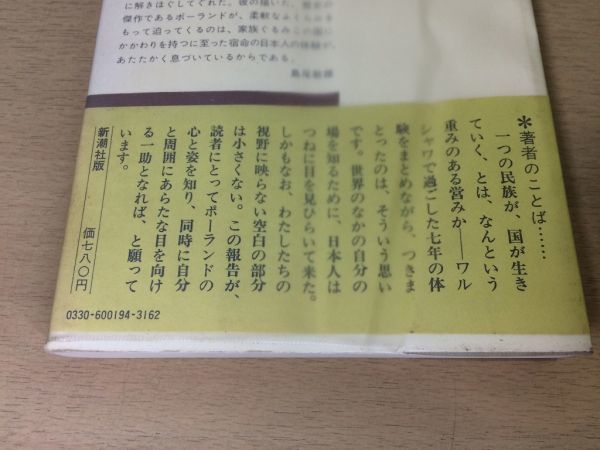 に解きほぐしてくれた。彼の描いた、
傑作であるポーランドが、柔軟なふくらみを
もって迫ってくるのは、家族ぐるみこの国に
かかわりを持つに至った宿命の日本人の体験が、
あたたかく息づいているからである。
島尾敏雄
＊著者のことば……
一つの民族が、国が生き
ていく、とは、なんという
重みのある営みか——ワル
シャワで過ごした七年の体
験をまとめながら、つきま
とったのは、そういう思い
です。世界のなかの自分の
場を知るために、日本人は
つねに目を見ひらいて来た。
しかもなお、わたしたちの
視野に映らない空白の部分
は小さくない。この報告が、
読者にとってポーランドの
心と姿を知り、同時に自分
と周囲にあらたな目を向け
る一助となれば、と願って
います。
新潮社版
価七八〇円
0330-600194-3162